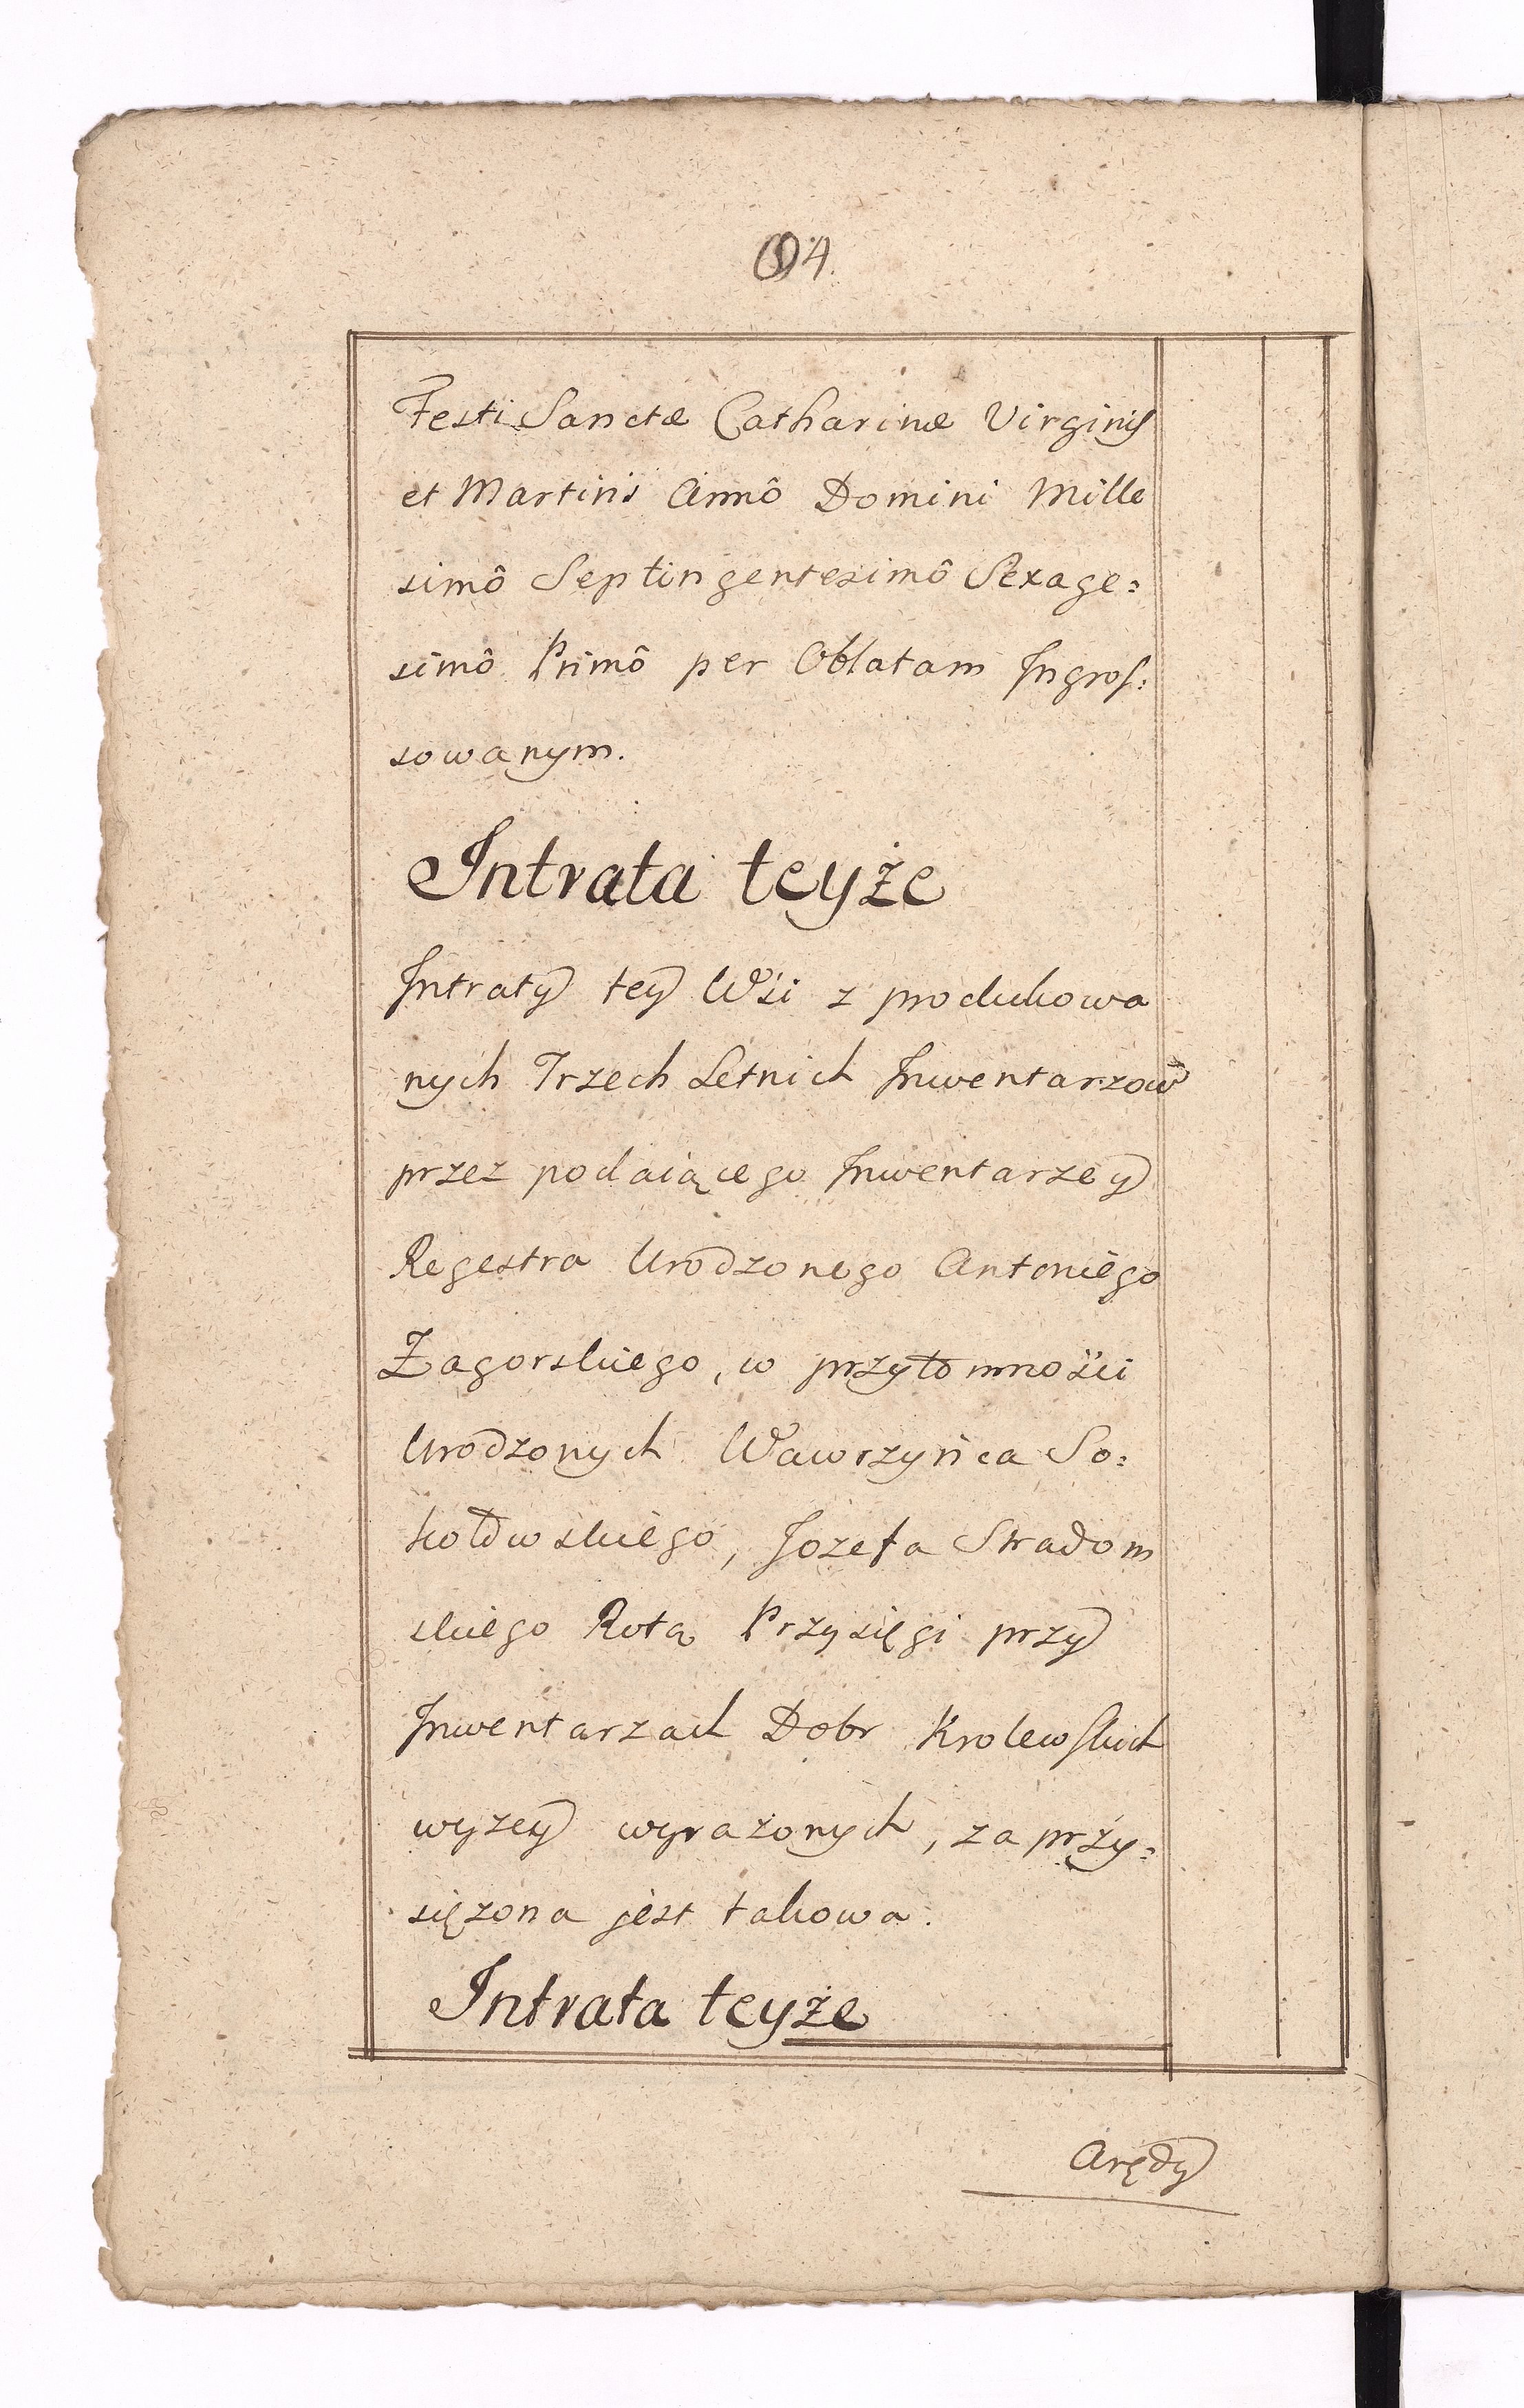 94.
Festi Sanctæ Catharinæ Virginis
et Martiris Annô Domini Mille
simô Septingentesimô Sexage:
simô Primô per Oblatam Ingros:
sowanym.
Intrata teyże
Intraty tey Wśi z produkowa
nych Trzech Letnich Inwentarzow
przez podaiącego Inwentarze y
Regestra Urodzonego Antoniego
Zagorskiego, w przytomności
Urodzonych Wawrzyńca So:
kołowskiego, Jozefa Stradom
skiego Rotą Przysięgi przy
Inwentarzach Dobr Krolewskich
wyzey wyrazonych, zaprzy:
sięzona jest takowa.
Intrata teyże
Arędy